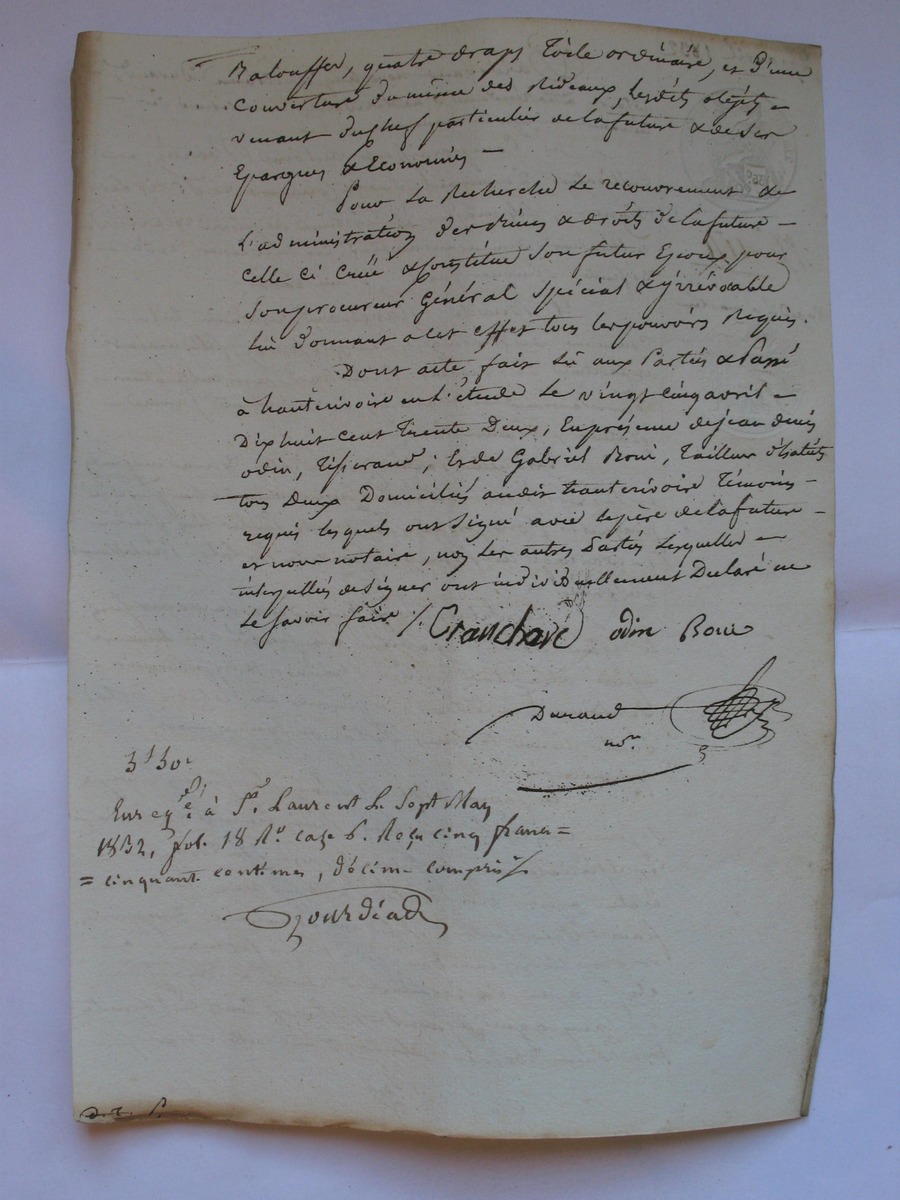 Balouffer, quatre draps Toile ordinaire, et D'une
Couverture du même des Rideaux, lesdits objets =
venant du chef particulier de la future & de ses
Epargnes & Economies —
Pour la Recherche le recouvrement &
L'administration des biens & droits de la future —
Celle ci Créé & Constitue Son futur Epoux pour
Son procureur Général Spécial & irrévocable
lui donnant a cet effet tous les pouvoirs Requis.
Dont acte fait Lu aux Parties & Passé
à hauterivoire en L'étude Le vingt cinq avril =
Dix huit cent Trente Deux, En présence de jean denis
odin, Tisserand ; Et de Gabriel Boni, Tailleur d'habits
tous Deux Domiciliés audit hauterivoire Témoins =
requis lesquels ont Signé avec le père de la future =
et nous notaire, non les autres Parties Lesquelles =
interpellées de Signer ont individuellement Déclaré ne
Le Savoir faire ./. Cranchard odin Boni
Durand
nore
3f 30c
Enregé à St. Laurent Le Sept May
1832, fol. 18 Ro. case 6. Reçu cinq francs =
= cinquante centimes, décime compris ./.